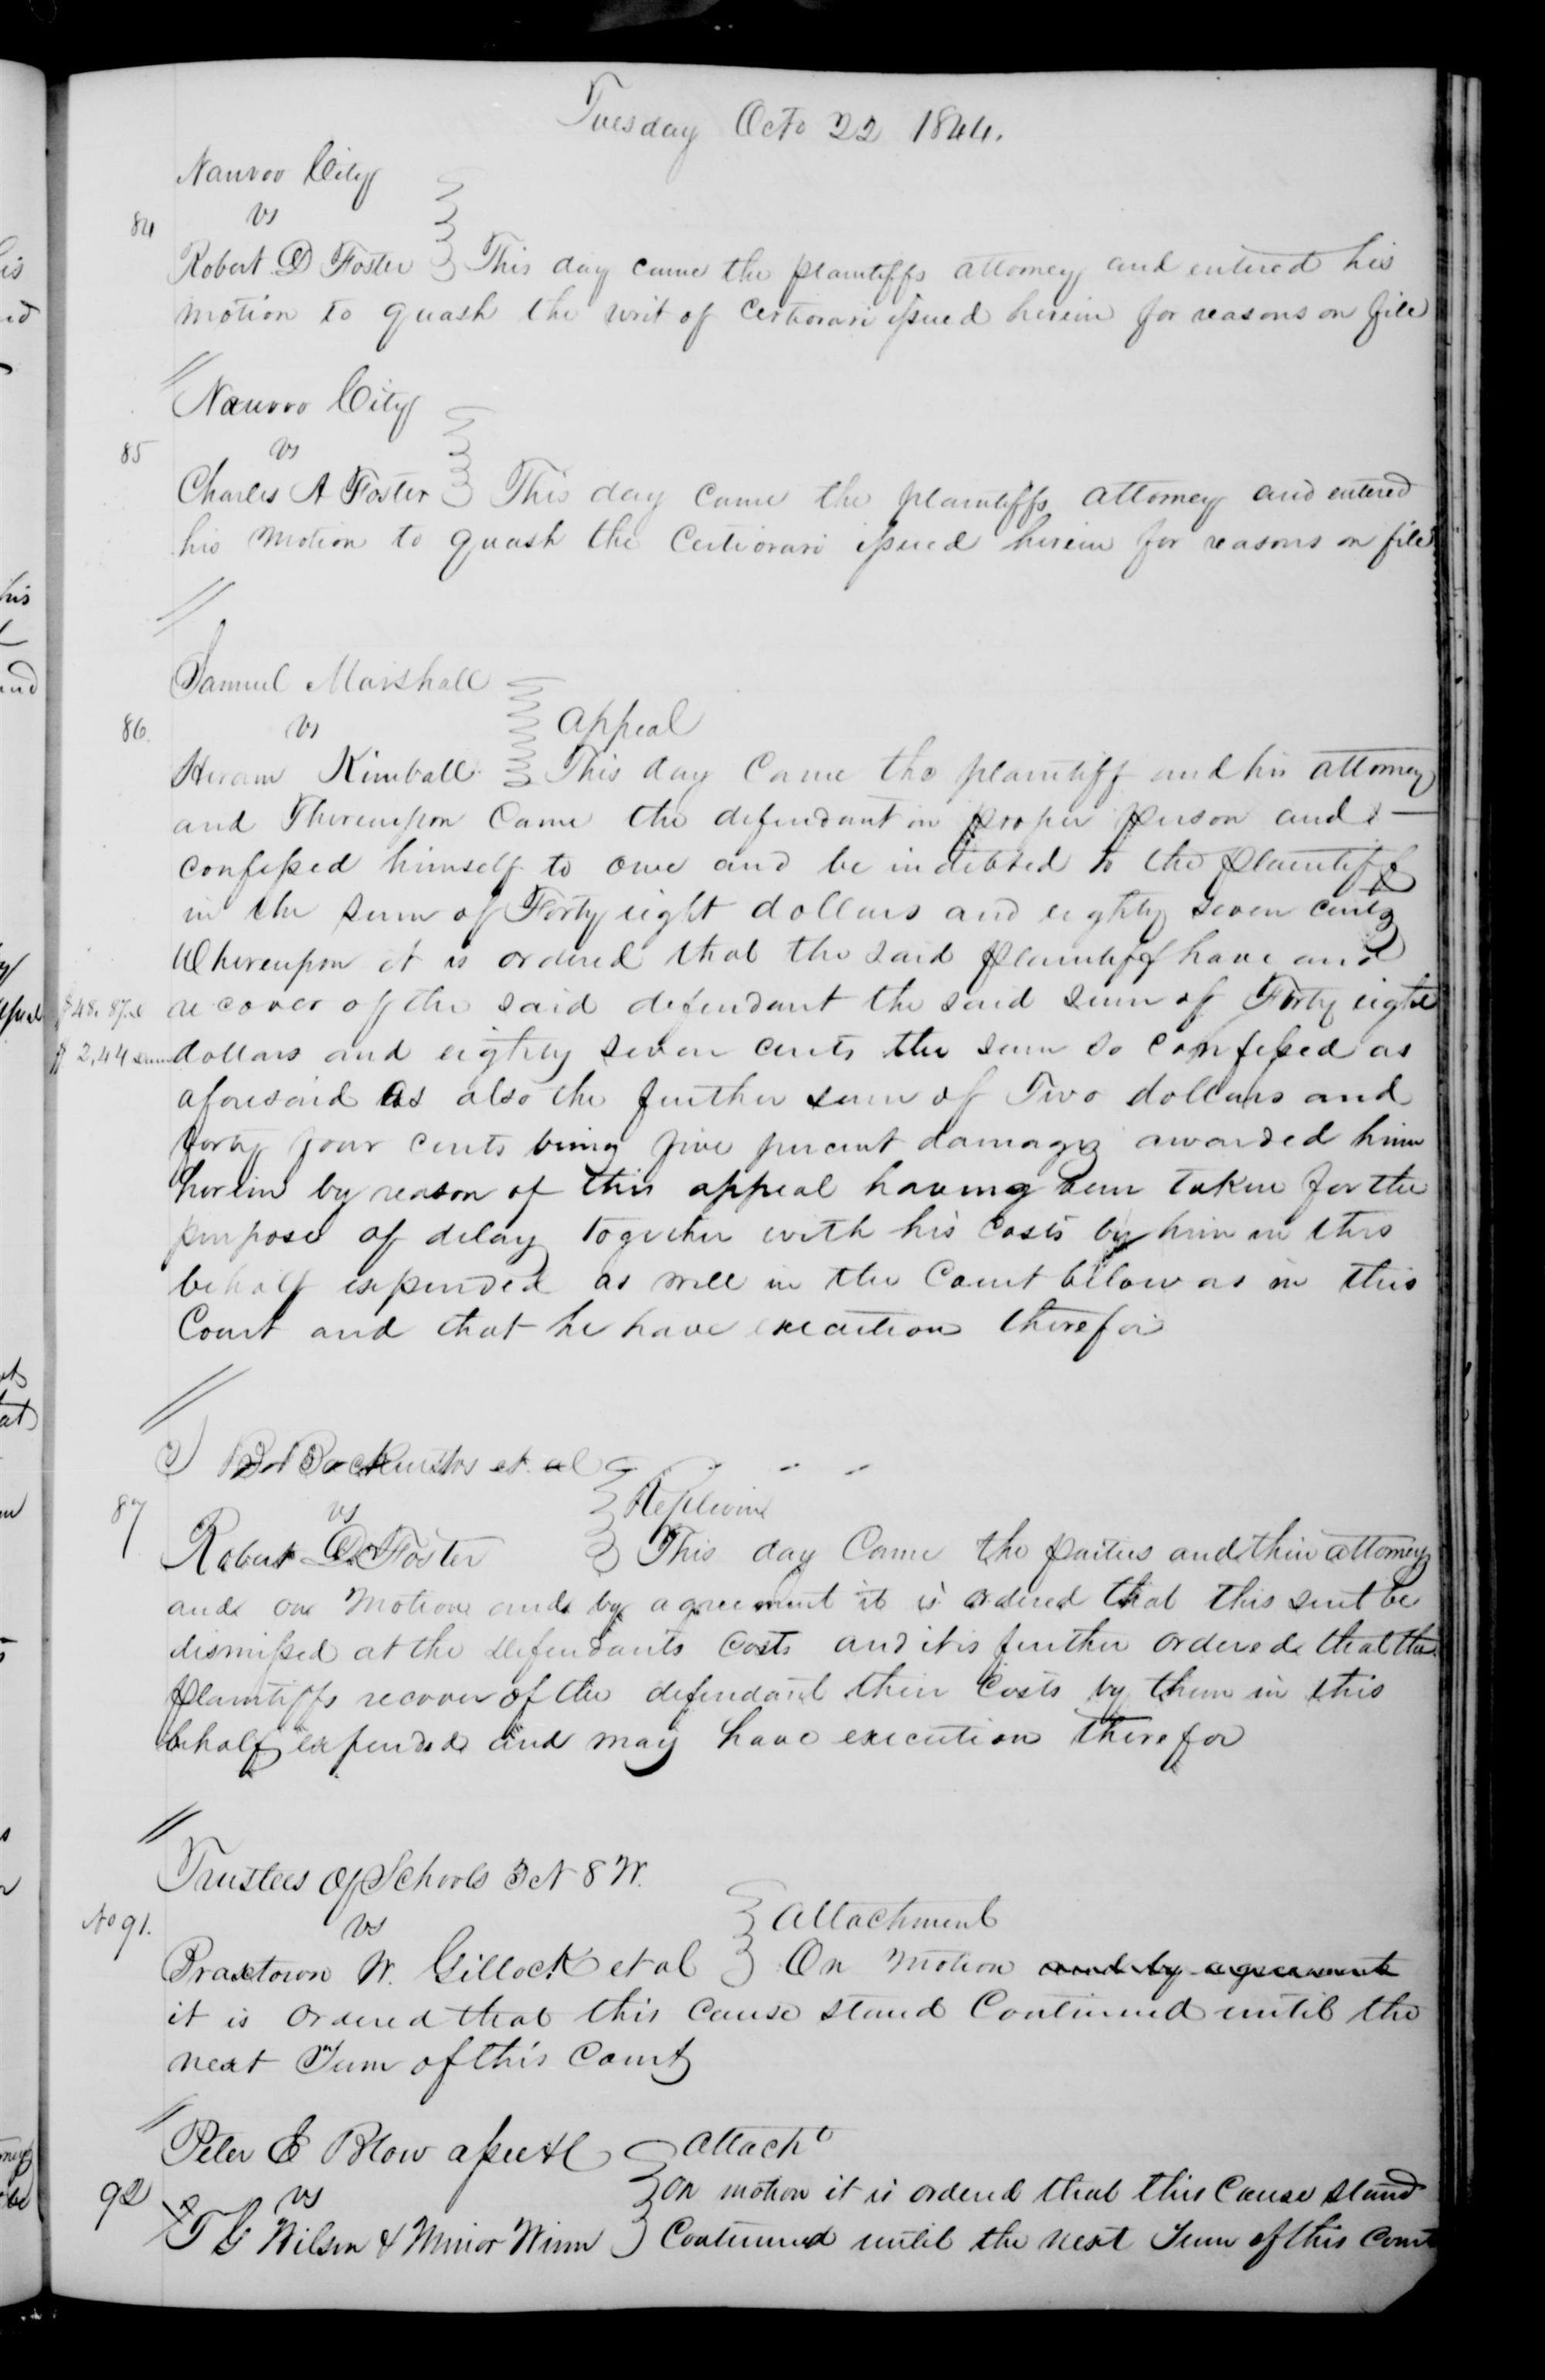 Tuesday Octo 22 1844.
Nauvoo City
84 vs
Robert D Foster This day came the plaintiffs attorney and entered his
motion to quash the writ of certiorari issued herein for reasons on file
Nauvoo City
85 vs
Charles A Foster This day came the plaintiffs attorney and entered
his motion to quash the Certiorari issued herein for reasons on file
Samuel Marshall
86. vs appeal
Hiram Kimball This day Came the plaintiff and his attorney
and Thereupon Came the defendant in proper person and
confessed himself to owe and be indebted to the plaintiff
in the sum of Forty eight dollars and eighty seven cents
Whereupon it is ordered that the said plaintiff have and
$48.87 recover of the said defendant the said sum of Forty eight
$2,44 dollars and eighty seven cents the sum so confessed as
aforesaid as also the further sum of Two dollars and
forty four cents being five percent damages awarded him
herein by reason of this appeal having been taken for the
purpose of delay together with his costs by him in this
behalf expended as well in the Court below as in this
Court and that he have execution therefor
Backenstos et al
87 vs Replevin
Robert D Foster This day Came the parties and their attorneys
and on motion and by agreement it is ordered that this suit be
dismissed at the defendants Costs and it is further ordered that the
plaintiffs recover of the defendant their Costs by them in this
behalf expended and may have execution therefor
Trustees of Schools 3 N 8 W.
No 91. vs attachment
Braxtown W. Gillock et al On motion and by agreement
it is ordered that this cause stand Continued until the
next Term of this Court
Peter E Blow attacht
92 vs On motion it is ordered that this Cause stand
T G Wilson & Minor Winn Continued until the next Term of this Court